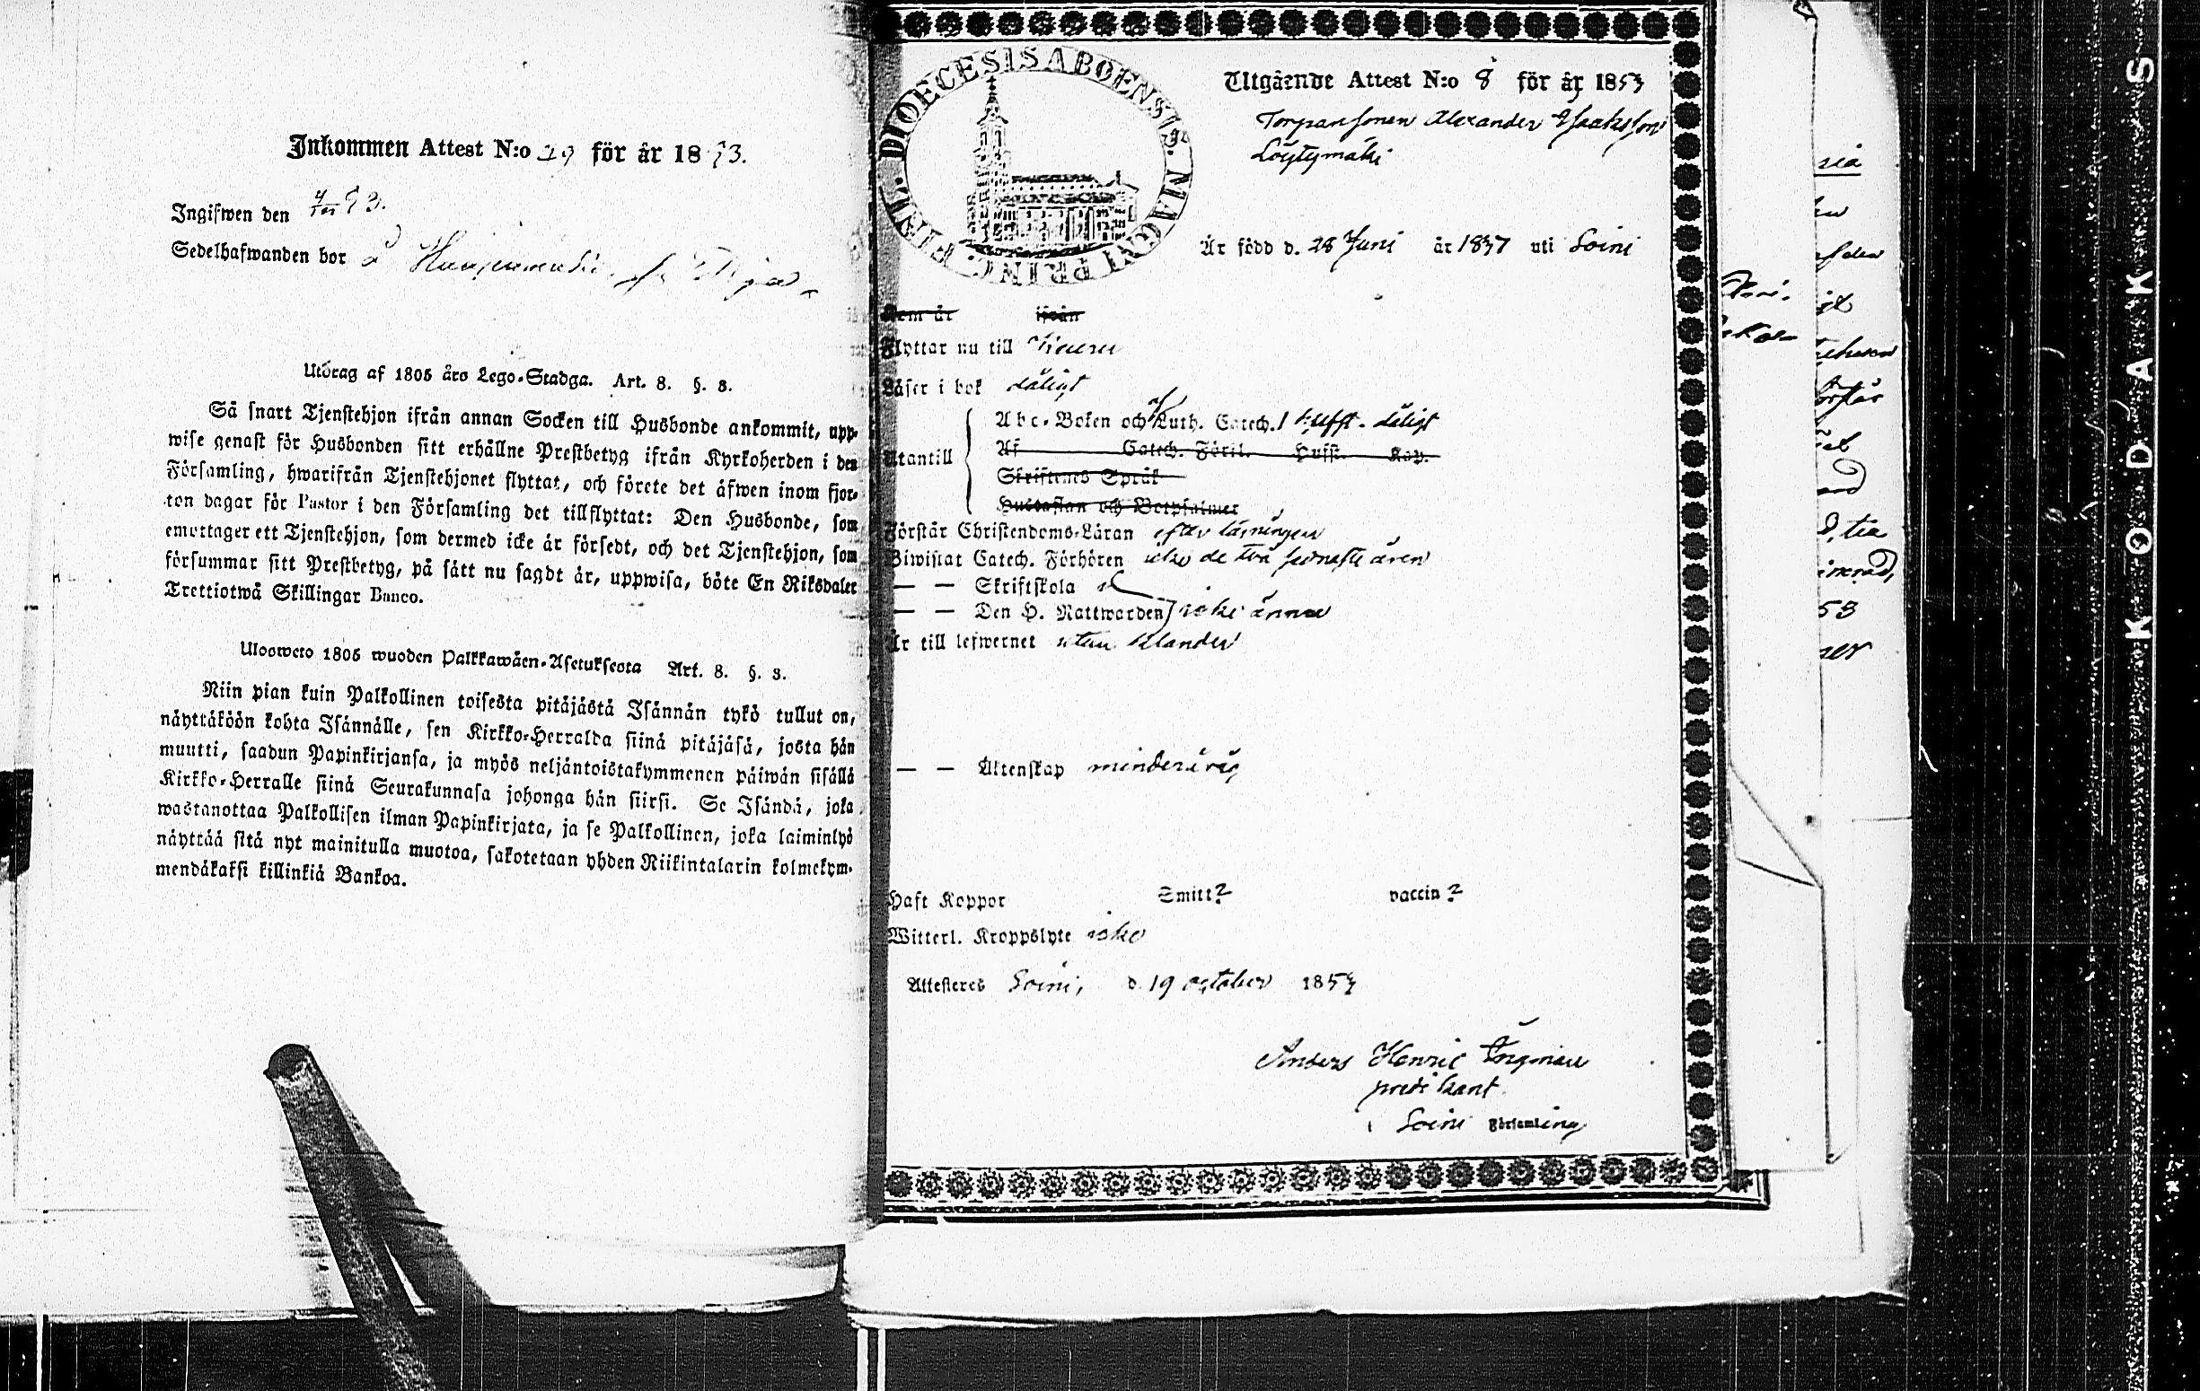 Inkommen Attest N:o 29 för år 1853.
Ingifwen den
Sedelhafwanden bor å
Utdrag af 1805 års Lego-Stadga. Art. 8. §. 3.
Så snart Tjenstehjon ifrån annan Socken till Husbonde ankommit, upp-
wise genast för Husbonden sitt erhållne Prestbetyg ifrån Kyrkoherden i den
Församling, hwarifrån Tjenstehjonet flyttat, och förete det äfwen inom fjor-
ton dagar för Pastor i den Församling det tillflyttat: Den Husbonde, som
emottager ett Tjenstehjon, som dermed icke är försedt, och det Tjenstehjon, som
försummar sitt Prestbetyg, på sätt nu sagdt är, uppwisa, böte En Riksdaler
Trettiotwå Skillingar Banco.
Ulosweto 1805 wuoden Palkkawäen-Asetuksesta Art. 8. §. 3.
Niin pian kuin Palkollinen toisesta pitäjästä Isännän tykö tullut on,
näyttäköön kohta Isännälle, sen Kirkko-Herralda siinä pitäjäsä, josta hän
muutti, saadun Papinkirjansa, ja myös neljäntoistakymmenen päiwän sisällä
Kirkko-Herralle siinä Seurakunnasa johonga hän siirsi. Se Isändä, joka
wastanottaa Palkollisen ilman Papinkirjata, ja se Palkollinen, joka laiminlyö
näyttää sitä nyt mainitulla muotoa, sakotetaan yhden Riikintalarin kolmekym-
mendäkaksi killinkiä Bankoa.
DIOECESIS ABOENSIS. MAGNI PRINC. FINL.
Utgående Attest N:o 8 för år 1853
Torparesonen Alexander Isaksson
Löytymäki
Är född d. 28 Juni år 1837 uti Soini
Kom år ifrån
Flyttar nu till Keuru
Läser i bok dåligt
Utantill
Abc-Boken och af Luth. Catech. 1 hufst. dåligt
Af Catech. Förkl. Hufst. Kap.
Skriftenes Språk
Hustaflan och Botpsalmer
Förstår Christendoms-Läran efter läsningen
Biwistat Catech. Förhören icke de två sednaste åren
— — Skriftskola
— — Den H. Nattwarden icke ännu
Är till lefwernet utan klander
— — Äktenskap minderårig
Haft Koppor Smitt? vaccin?
Witterl. Kroppslyte icke
Attesteres Soini, d. 19 october 1853
Anders Henric Ingman
predikant
i Soini Församling
KODAK S